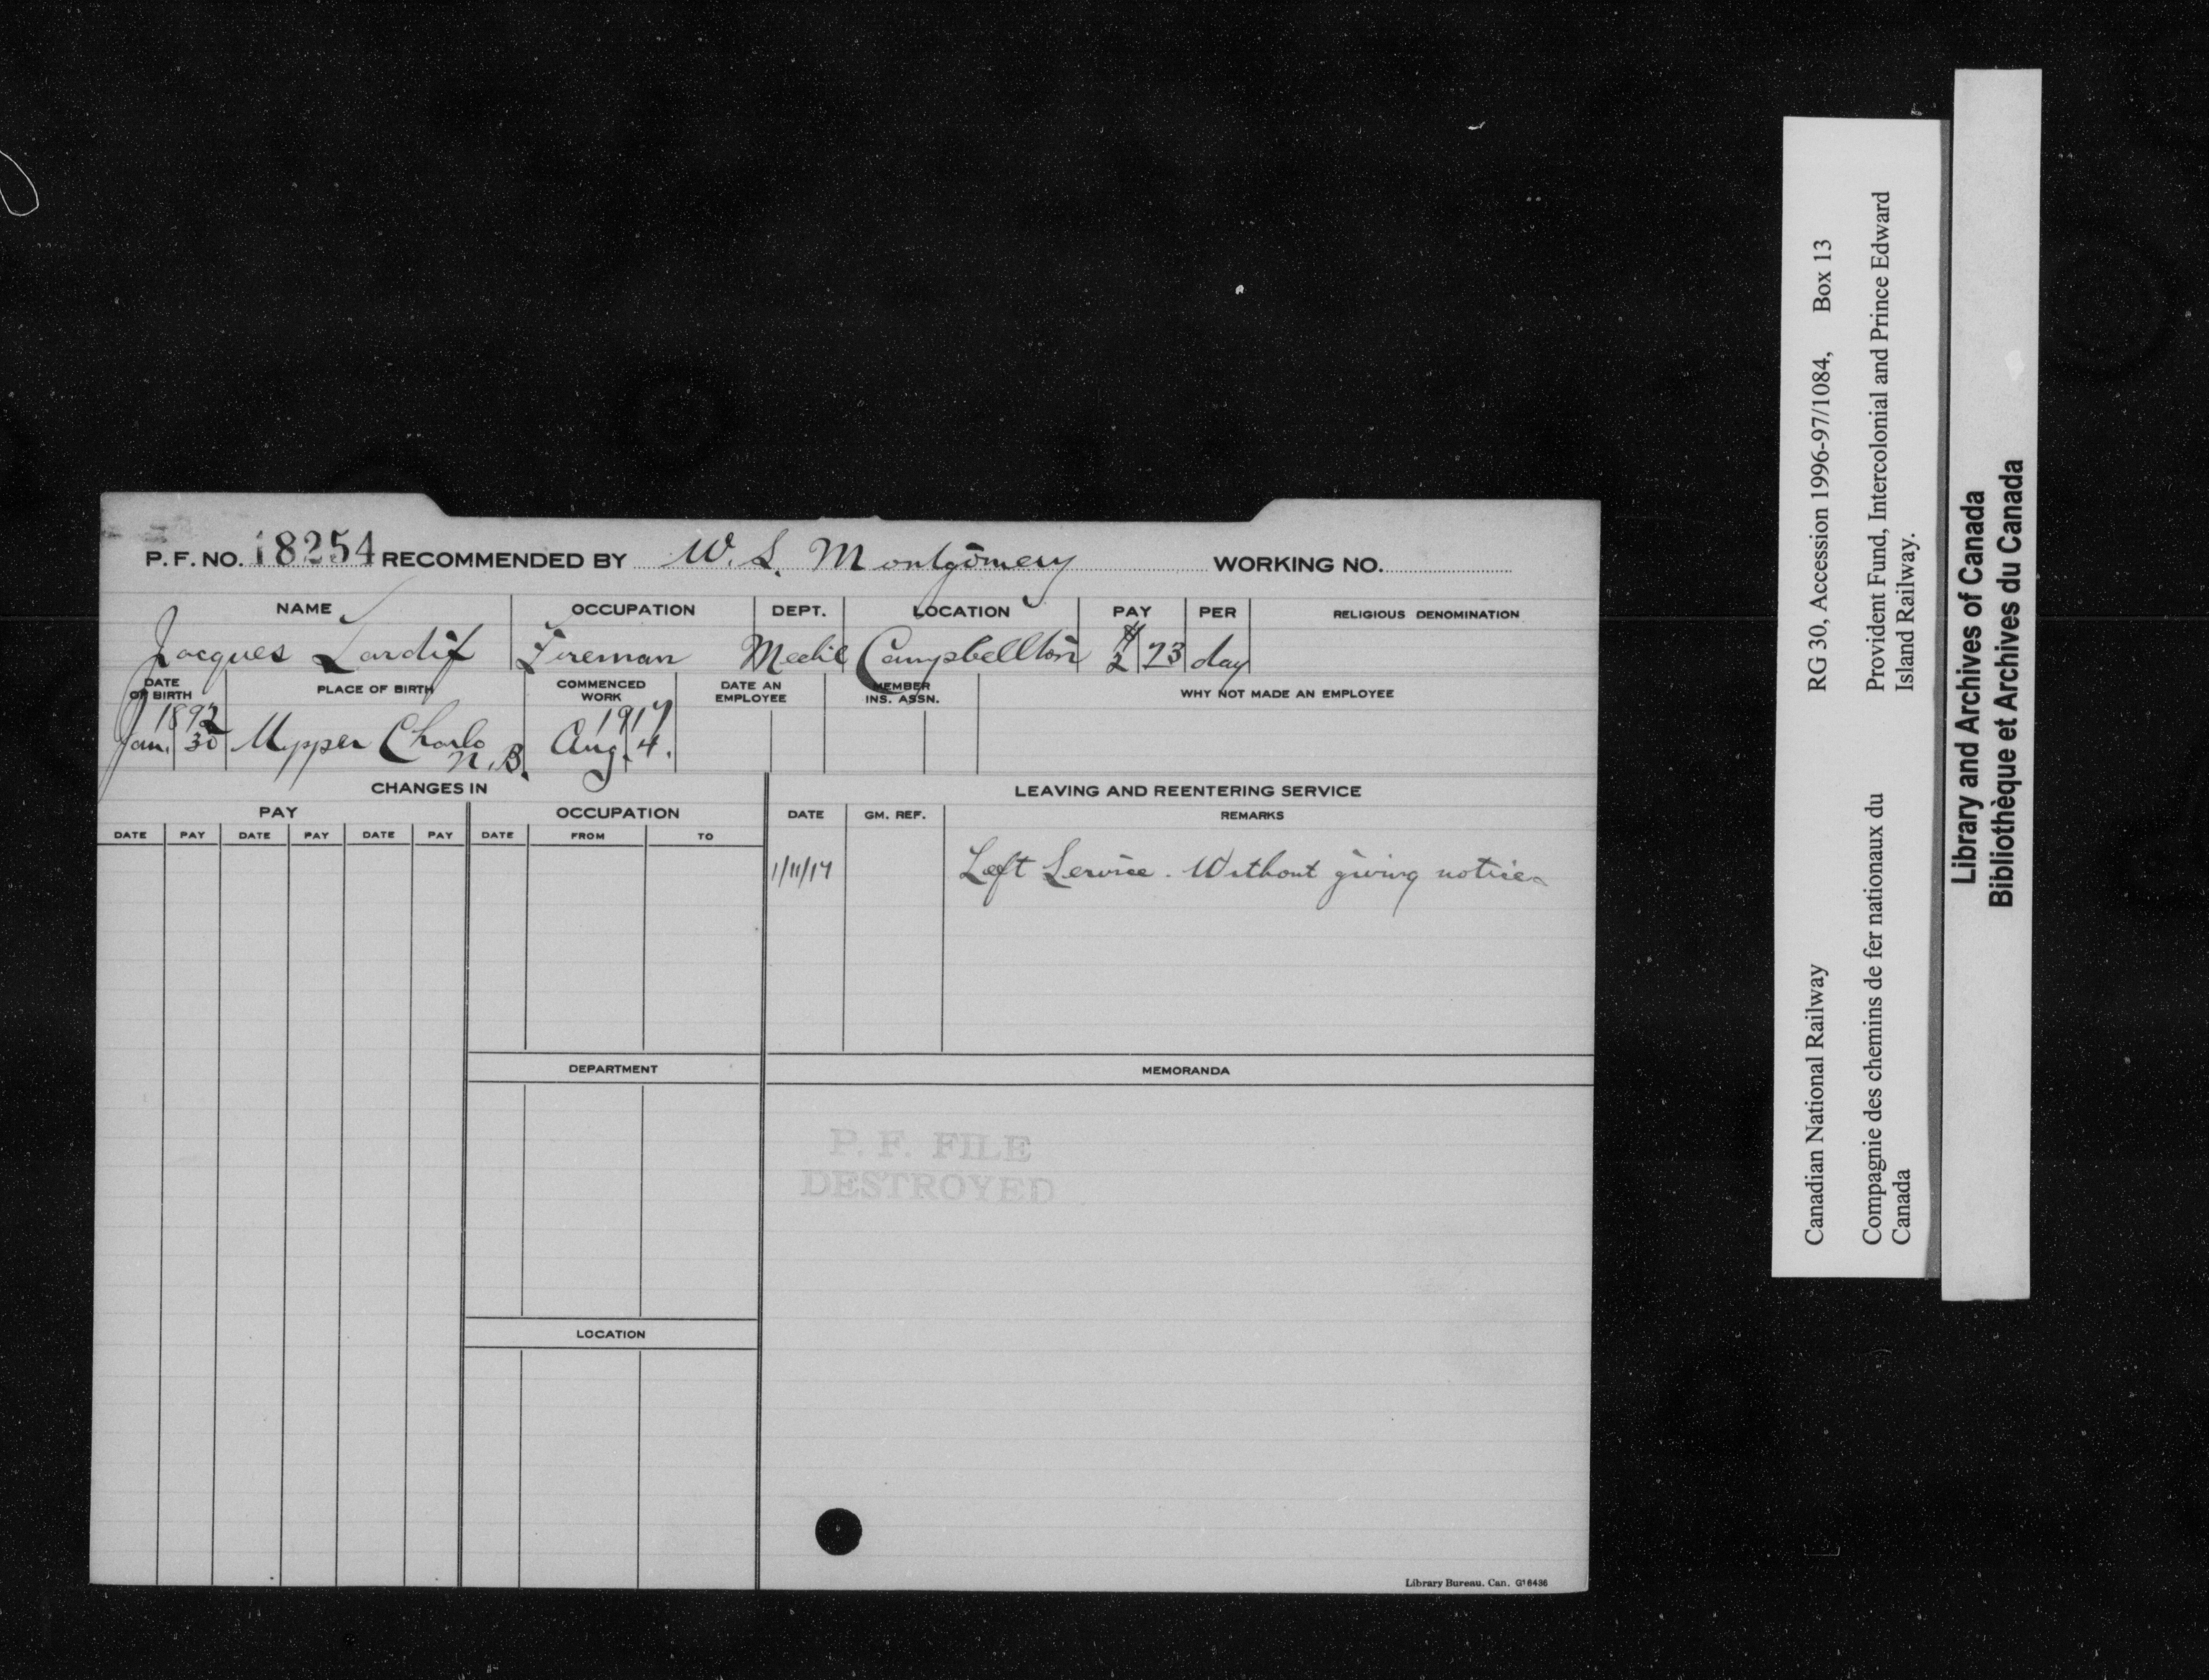 P. F. NO. 18254 RECOMMENDED BY W. S. Montgomery WORKING NO.
NAME OCCUPATION DEPT. LOCATION PAY PER RELIGIOUS DENOMINATION
Jacques Tardif Fireman Mechl Campbellton $2 23 day
DATE OF BIRTH PLACE OF BIRTH COMMENCED WORK DATE AN EMPLOYEE MEMBER INS. ASSN. WHY NOT MADE AN EMPLOYEE
1892 1917
Jan. 30 Upper Charlo N.B. Aug. 4.
CHANGES IN LEAVING AND REENTERING SERVICE
PAY OCCUPATION DATE GM. REF. REMARKS
DATE PAY DATE PAY DATE PAY DATE FROM TO
1/11/17 Left Service. Without giving notice.
DEPARTMENT MEMORANDA
P. F. FILE
DESTROYED
LOCATION
Library Bureau. Can. G16436
Canadian National Railway RG 30, Accession 1996-97/1084, Box 13
Compagnie des chemins de fer nationaux du
Canada
Provident Fund, Intercolonial and Prince Edward
Island Railway.
Library and Archives of Canada
Bibliothèque et Archives du Canada